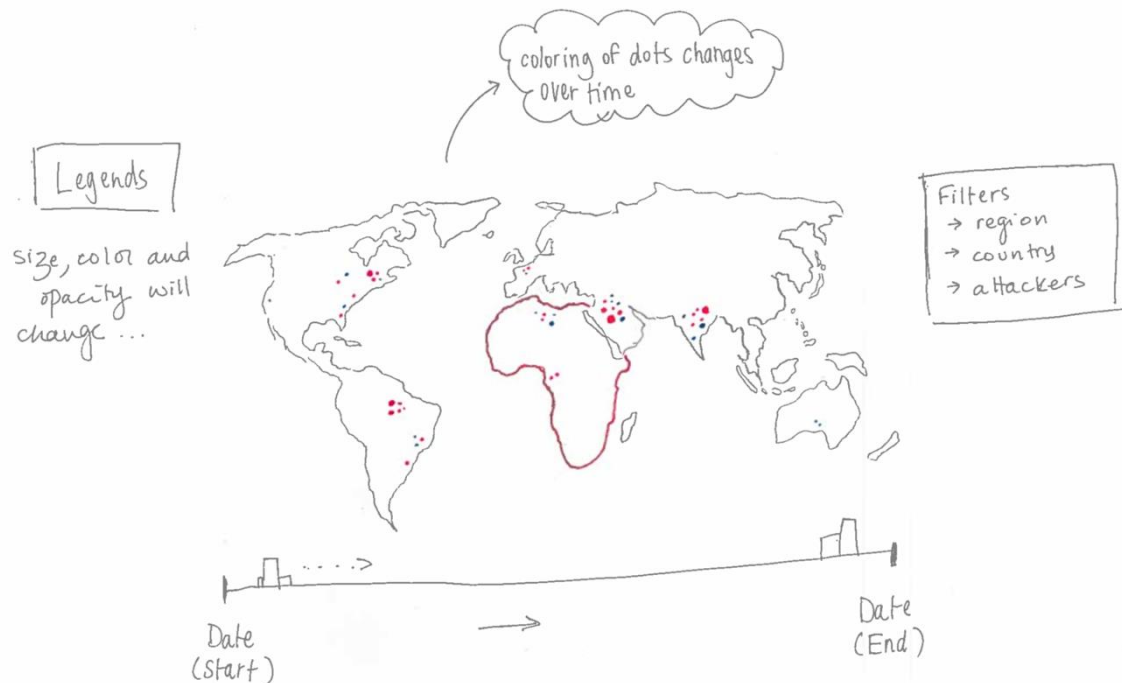 coloring of dots changes
over time
Legends
size, color and
opacity will
change ...
Filters
→ region
→ country
→ attackers
Date
(Start)
Date
(End)